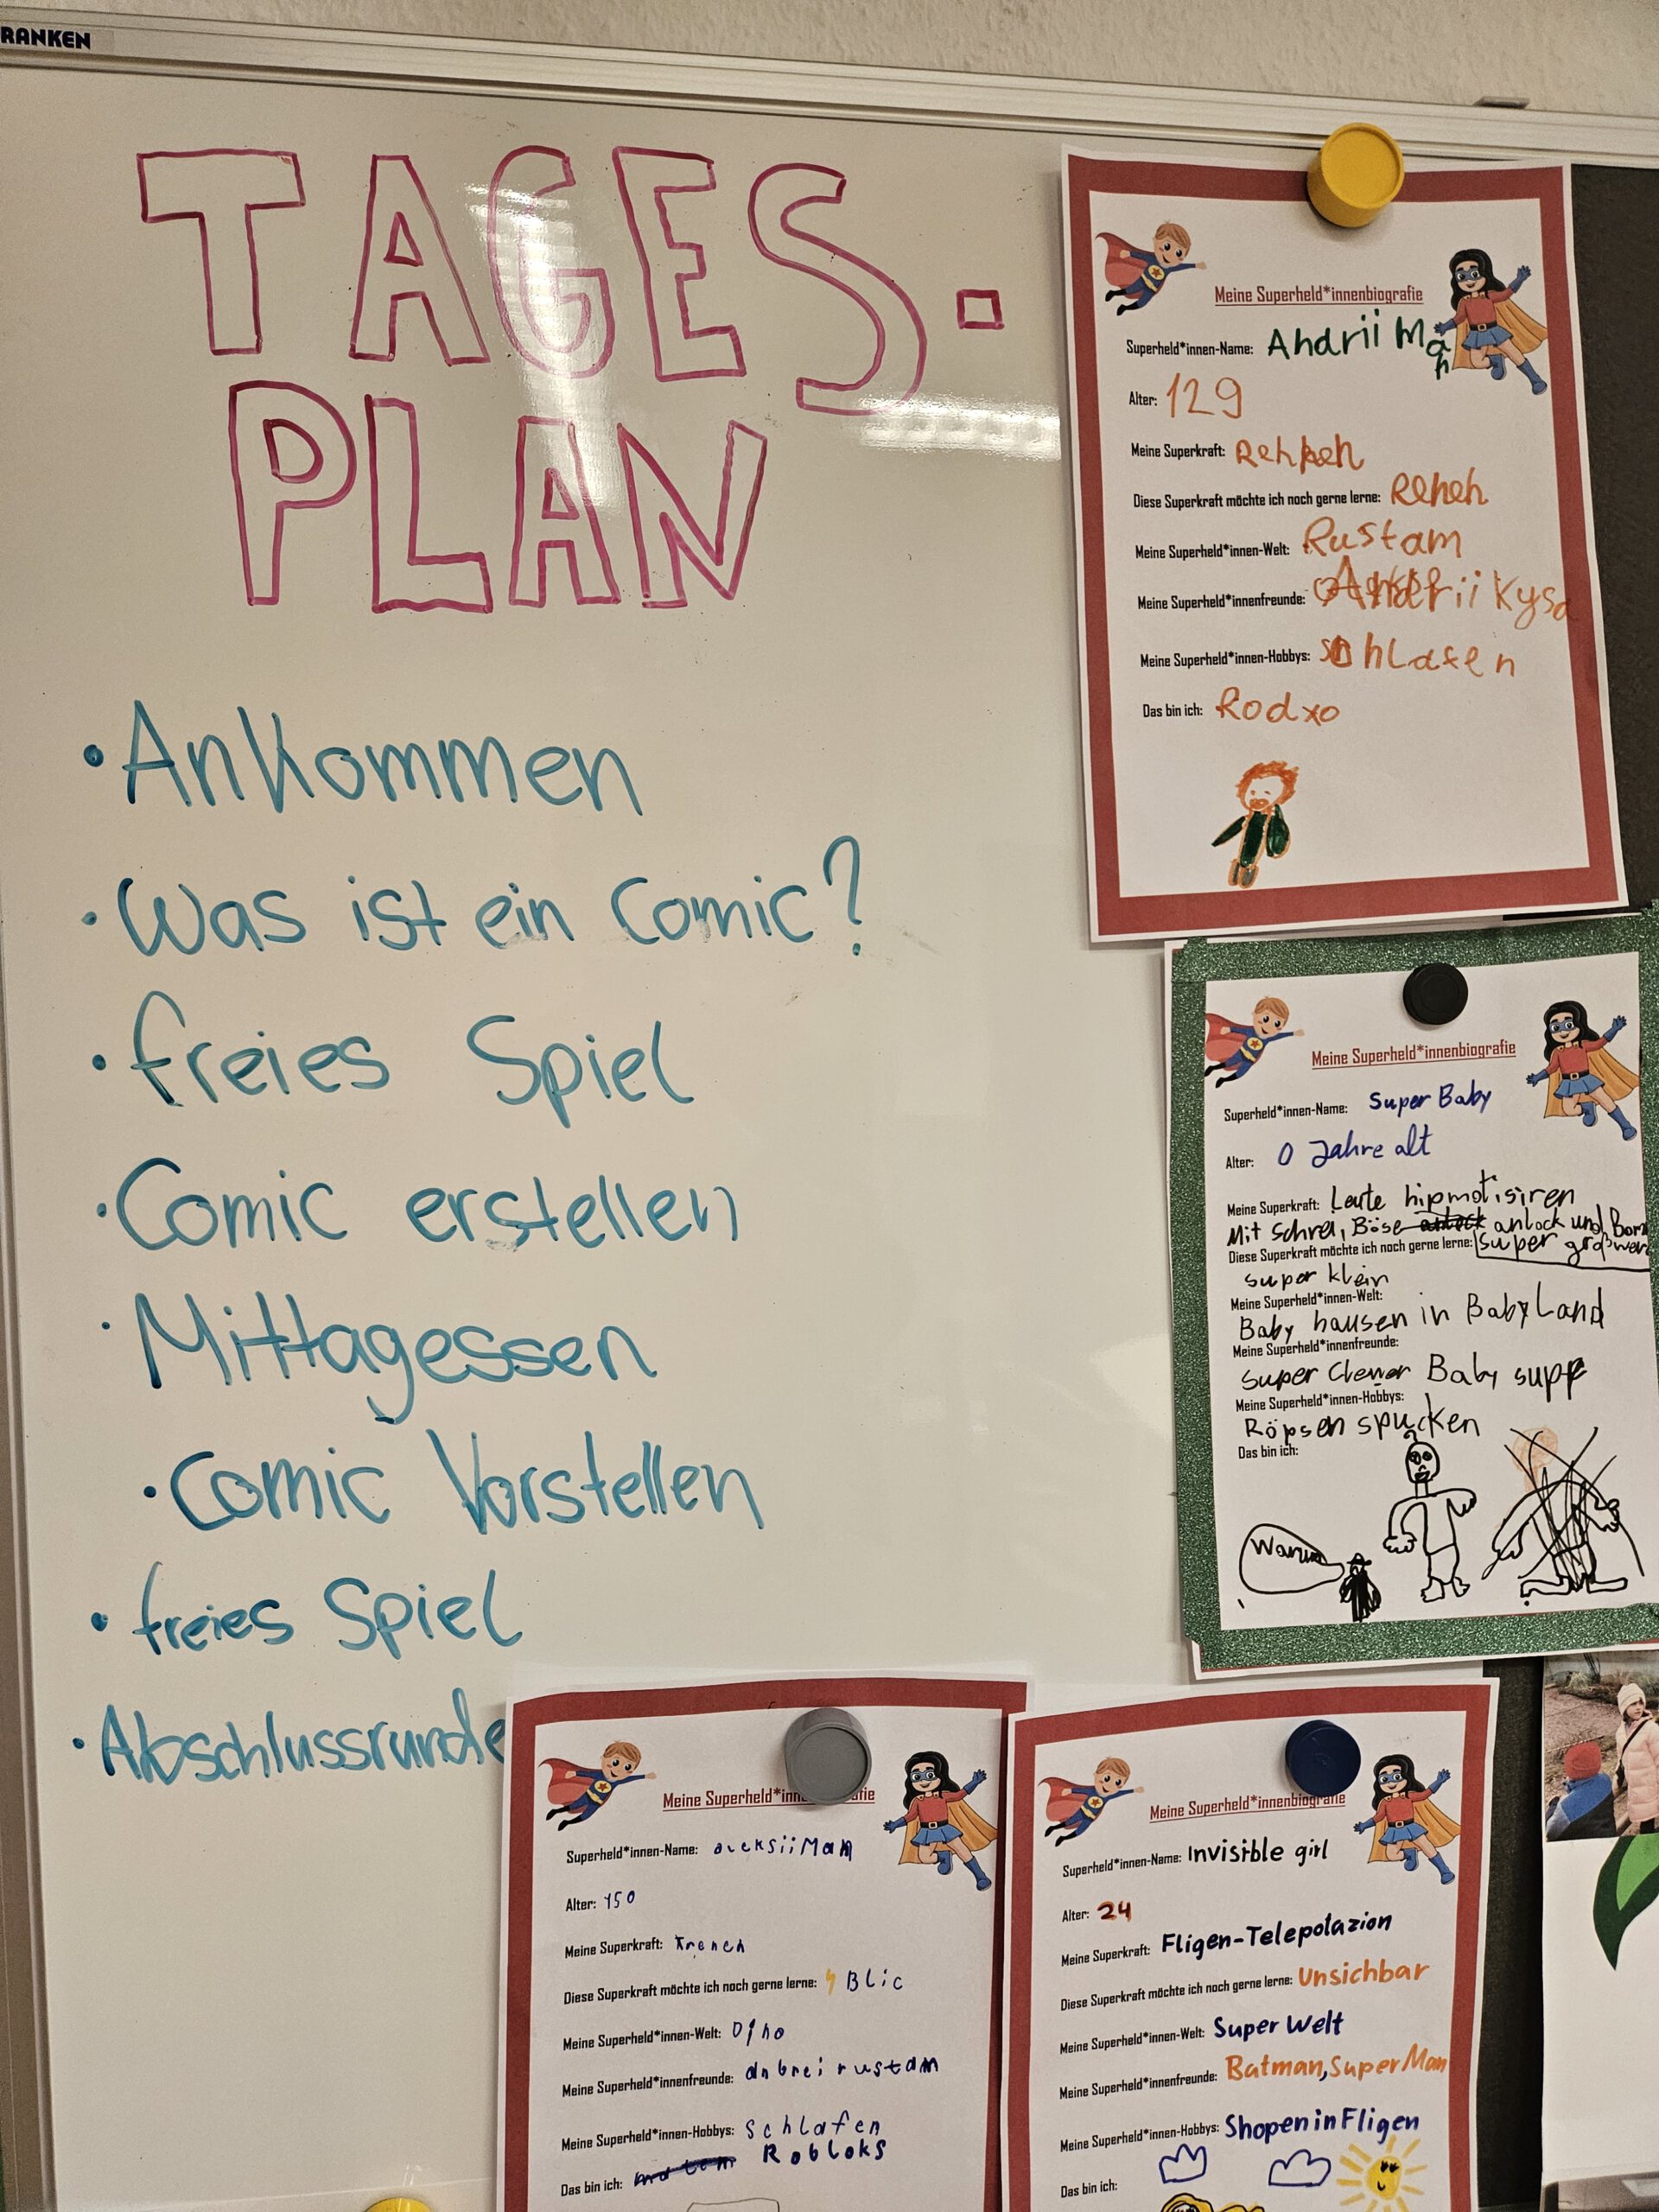 RANKEN
TAGES-
PLAN
• Ankommen
• Was ist ein Comic?
• freies Spiel
• Comic erstellen
• Mittagessen
• Comic Vorstellen
• freies Spiel
• Abschlussrunde
Meine Superheld*innenbiografie
Superheld*innen-Name: Andrii Man
Alter: 129
Meine Superkraft:
Diese Superkraft möchte ich noch gerne lerne:
Meine Superheld*innen-Welt: Rustam
Meine Superheld*innenfreunde:
Meine Superheld*innen-Hobbys: schlafen
Das bin ich: Rodxo
Meine Superheld*innenbiografie
Superheld*innen-Name: Super Baby
Alter: 0 Jahre alt
Meine Superkraft: Leute hipmotisiren
Mit Schrei, Böse anlock und Bom
Diese Superkraft möchte ich noch gerne lerne: super großwer
super klein
Meine Superheld*innen-Welt:
Baby hausen in BabyLand
Meine Superheld*innenfreunde:
Super Clever Baby supp
Meine Superheld*innen-Hobbys:
Röpsen spucken
Das bin ich:
Warum
Meine Superheld*inn fie
Superheld*innen-Name: oleksiiMan
Alter: 150
Meine Superkraft:
Diese Superkraft möchte ich noch gerne lerne: Blic
Meine Superheld*innen-Welt:
Meine Superheld*innenfreunde: rustam
Meine Superheld*innen-Hobbys: schlafen
Robloks
Das bin ich:
Meine Superheld*innenbiografie
Superheld*innen-Name: Invisible girl
Alter: 24
Meine Superkraft: Fligen-Telepolazion
Diese Superkraft möchte ich noch gerne lerne: Unsichbar
Meine Superheld*innen-Welt: Super Welt
Meine Superheld*innenfreunde: Batman, SuperMan
Meine Superheld*innen-Hobbys: Shopen in Fligen
Das bin ich: